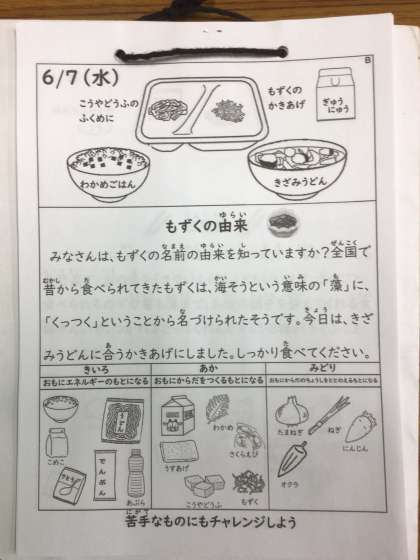 B
6/7(水)
こうやどうふの
ふくめに
もずくの
かきあげ
ぎゅう
にゅう
わかめごはん
きざみうどん
もずくの由来
ゆらい
みなさんは、もずくの名前の由来を知っていますか?全国で
なまえ ゆらい し ぜんこく
昔から食べられてきたもずくは、海そうという意味の「藻」に、
むかし た かい いみ も
「くっつく」ということから名づけられたそうです。今日は、きざ
な きょう
みうどんに合うかきあげにしました。しっかり食べてください。
あ た
きいろ
おもにエネルギーのもとになる
あか
おもにからだをつくるもとになる
みどり
おもにからだのちょうしをととのえるもとになる
うどん
こめこ
でんぷん
あぶら
わかめ
さくらえび
うすあげ
こうやどうふ
もずく
たまねぎ
ねぎ
にんじん
オクラ
苦手なものにもチャレンジしよう
にがて